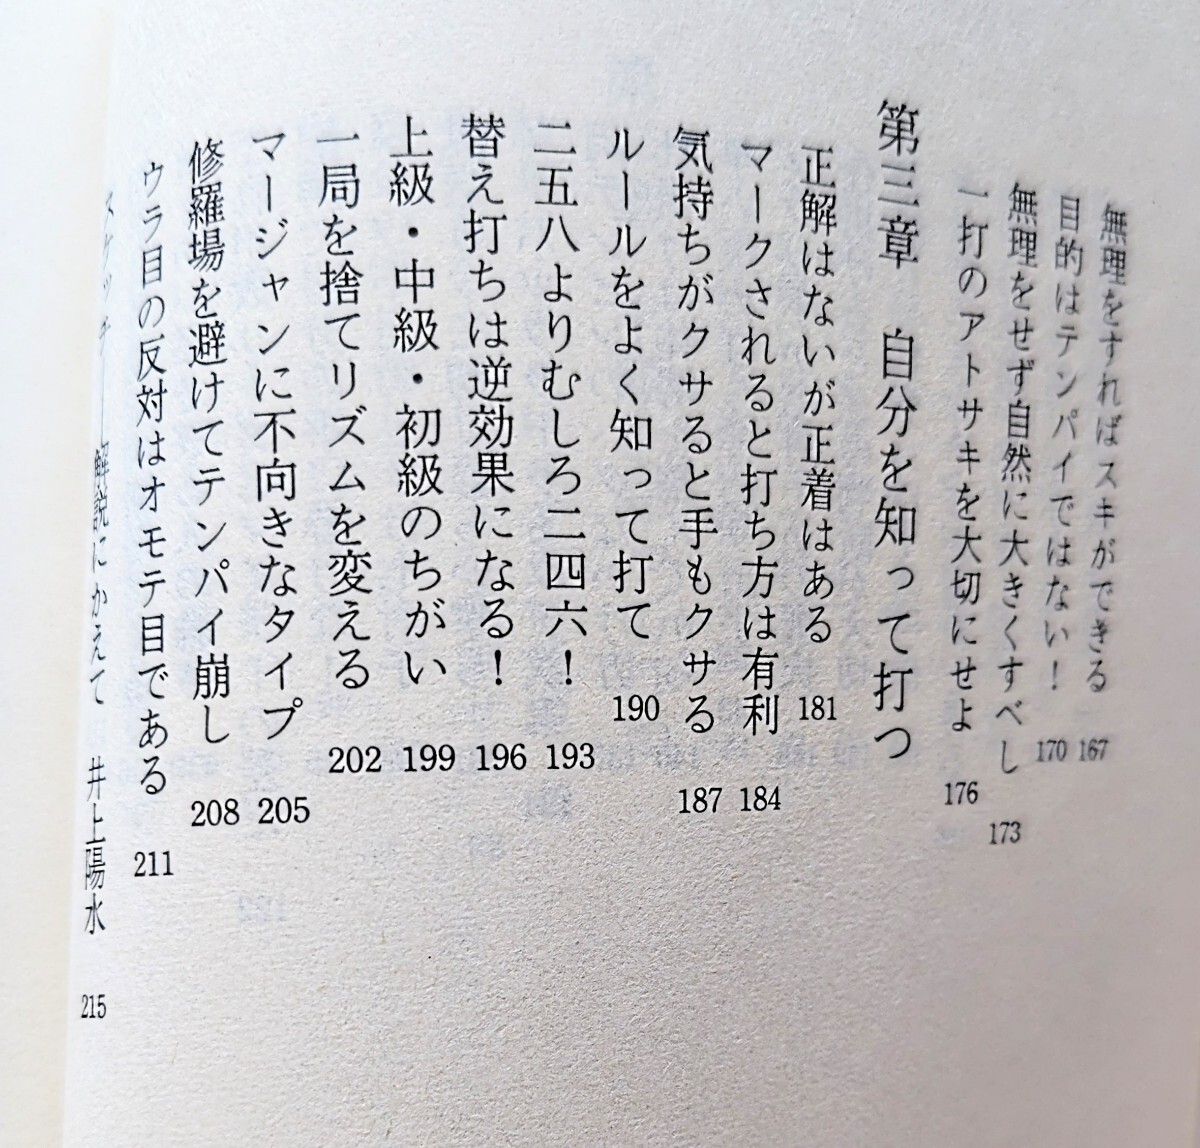 無理をすればスキができる 167
目的はテンパイではない! 170
無理をせず自然に大きくすべし 173
一打のアトサキを大切にせよ 176
第三章 自分を知って打つ
正解はないが正着はある 181
マークされると打ち方は有利 184
気持ちがクサると手もクサる 187
ルールをよく知って打て 190
二五八よりむしろ二四六! 193
替え打ちは逆効果になる! 196
上級・中級・初級のちがい 199
一局を捨てリズムを変える 202
マージャンに不向きなタイプ 205
修羅場を避けてテンパイ崩し 208
ウラ目の反対はオモテ目である 211
スケッチ——解説にかえて 井上陽水 215